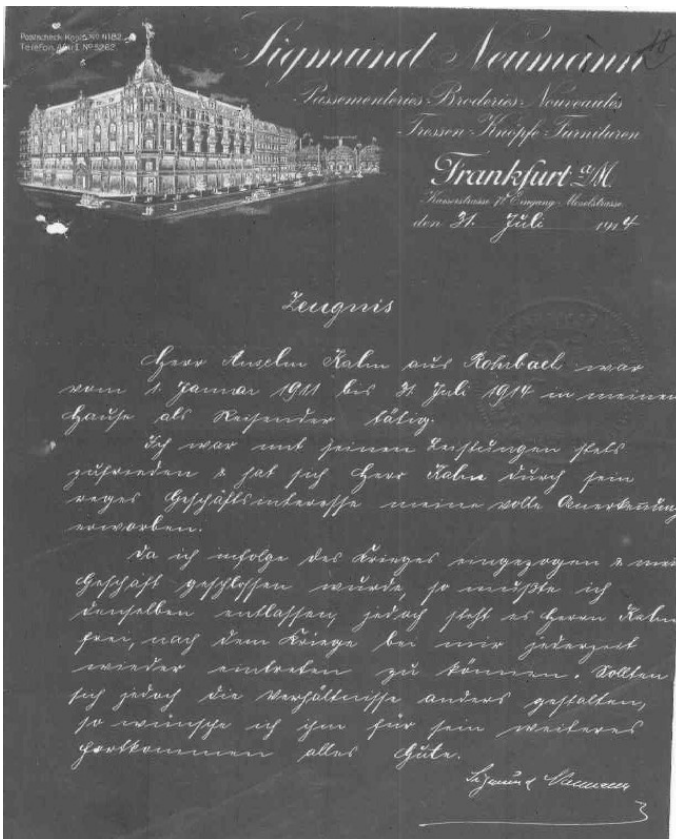 Postscheck Konto No 4182
Telefon Amt I No 5262
18
Sigmund Neumann
Passementeries-Broderies-Nouveautés
Tressen-Knöpfe-Furnituren
Frankfurt a/M.
Kaiserstrasse Eingang Moselstrasse
den 31. Juli 1914
Zeugnis
Herr Anselm Kahn aus Rohrbach war
vom 1. Januar 1911 bis 31 Juli 1914 in meinem
Hause als Reisender tätig.
Ich war mit seinen Leistungen stets
zufrieden & hat sich Herr Kahn durch sein
reges Geschäftsinteresse meine volle Anerkennung
erworben.
Da ich infolge des Krieges eingezogen & mein
Geschäft geschlossen wurde, so mußte ich
denselben entlassen, jedoch steht es Herrn Kahn
frei, nach dem Kriege bei mir jederzeit
wieder eintreten zu können. Sollten
sich jedoch die Verhältnisse anders gestalten,
so wünsche ich ihm für sein weiteres
Fortkommen alles Gute.
Sigmund Neumann